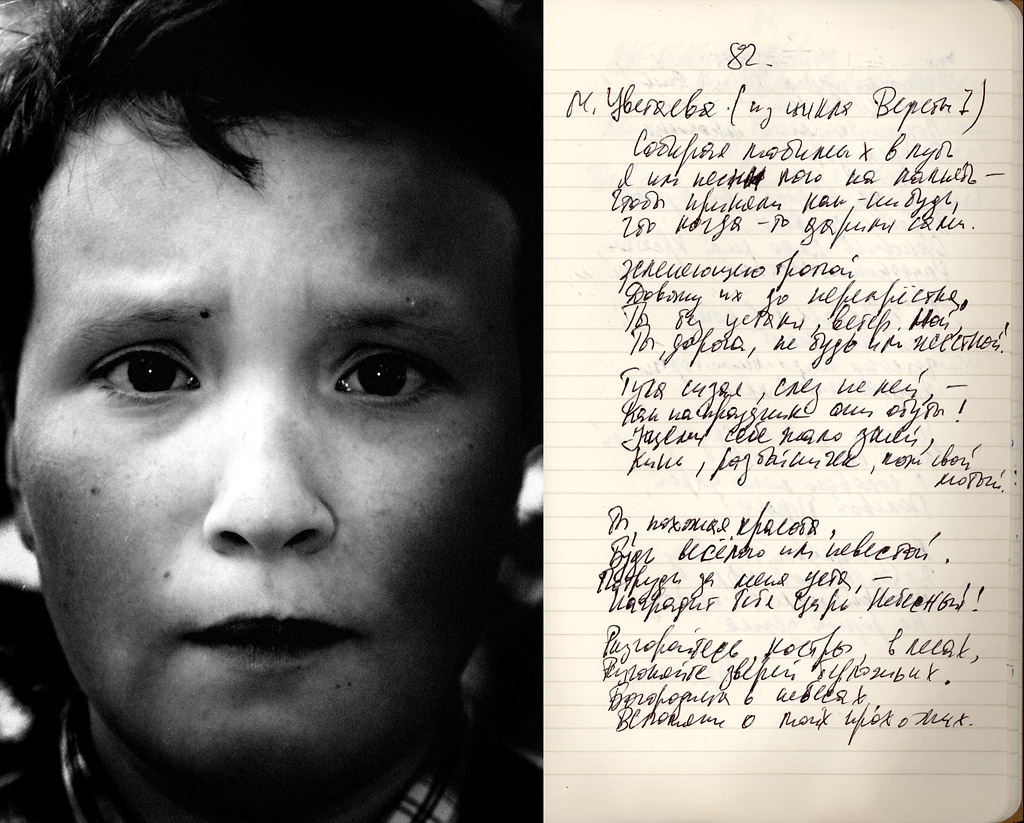 82.
М. Цветаева. (из цикла Версты I)
Собирая любимых в путь
Я им песни пою на память —
Чтобы приняли как-нибудь,
Что когда-то дарили сами.
Зеленеющею тропой
Довожу их до перекрёстка,
Ты без устали, ветер, пой,
Ты, дорога, не будь им жёсткой!
Туча сизая, слез не лей, —
Как на праздник они обуты!
Ущеми себе жало змей,
Кинь, разбойничек, нож свой
лютый.
Ты, прохожая красота,
Будь весёлою им невестой.
Потруди за меня уста, —
Наградит тебя Царь Небесный!
Разгорайтесь, костры, в лесах,
Разгоняйте зверей берложьих.
Богородица в небесах
Вспомяни о моих прохожих.